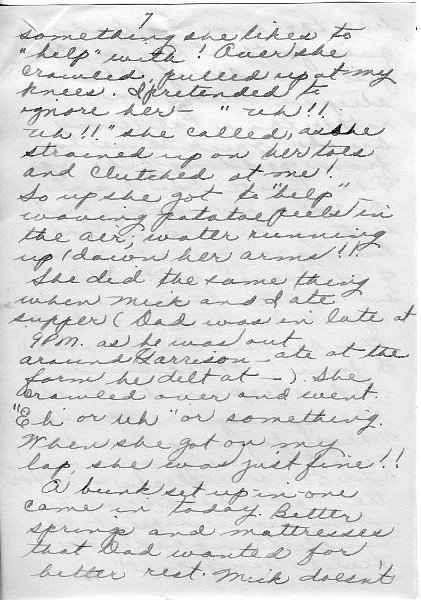 7
something she likes to
"help" with! Over she
crawled, pulled up at my
knees. I pretended to
ignore her - "uh!!
uh!!" she called, as she
strained up on her toes
and clutched at me!
So up she got to "help" -
waving potatoe peels in
the air; water running
up/down her arms!!
She did the same thing
when Mick and I ate
supper (Dad was in late at
9PM. as he was out
around Garrison - ate at the
farm he delt at -). She
crawled over and went
"Eh or uh" or something.
When she got on my
lap, she was just fine!!
A bunk set up-in-one
came in today. Better
springs and mattresses
that Dad wanted for
better rest. Mick doesn't